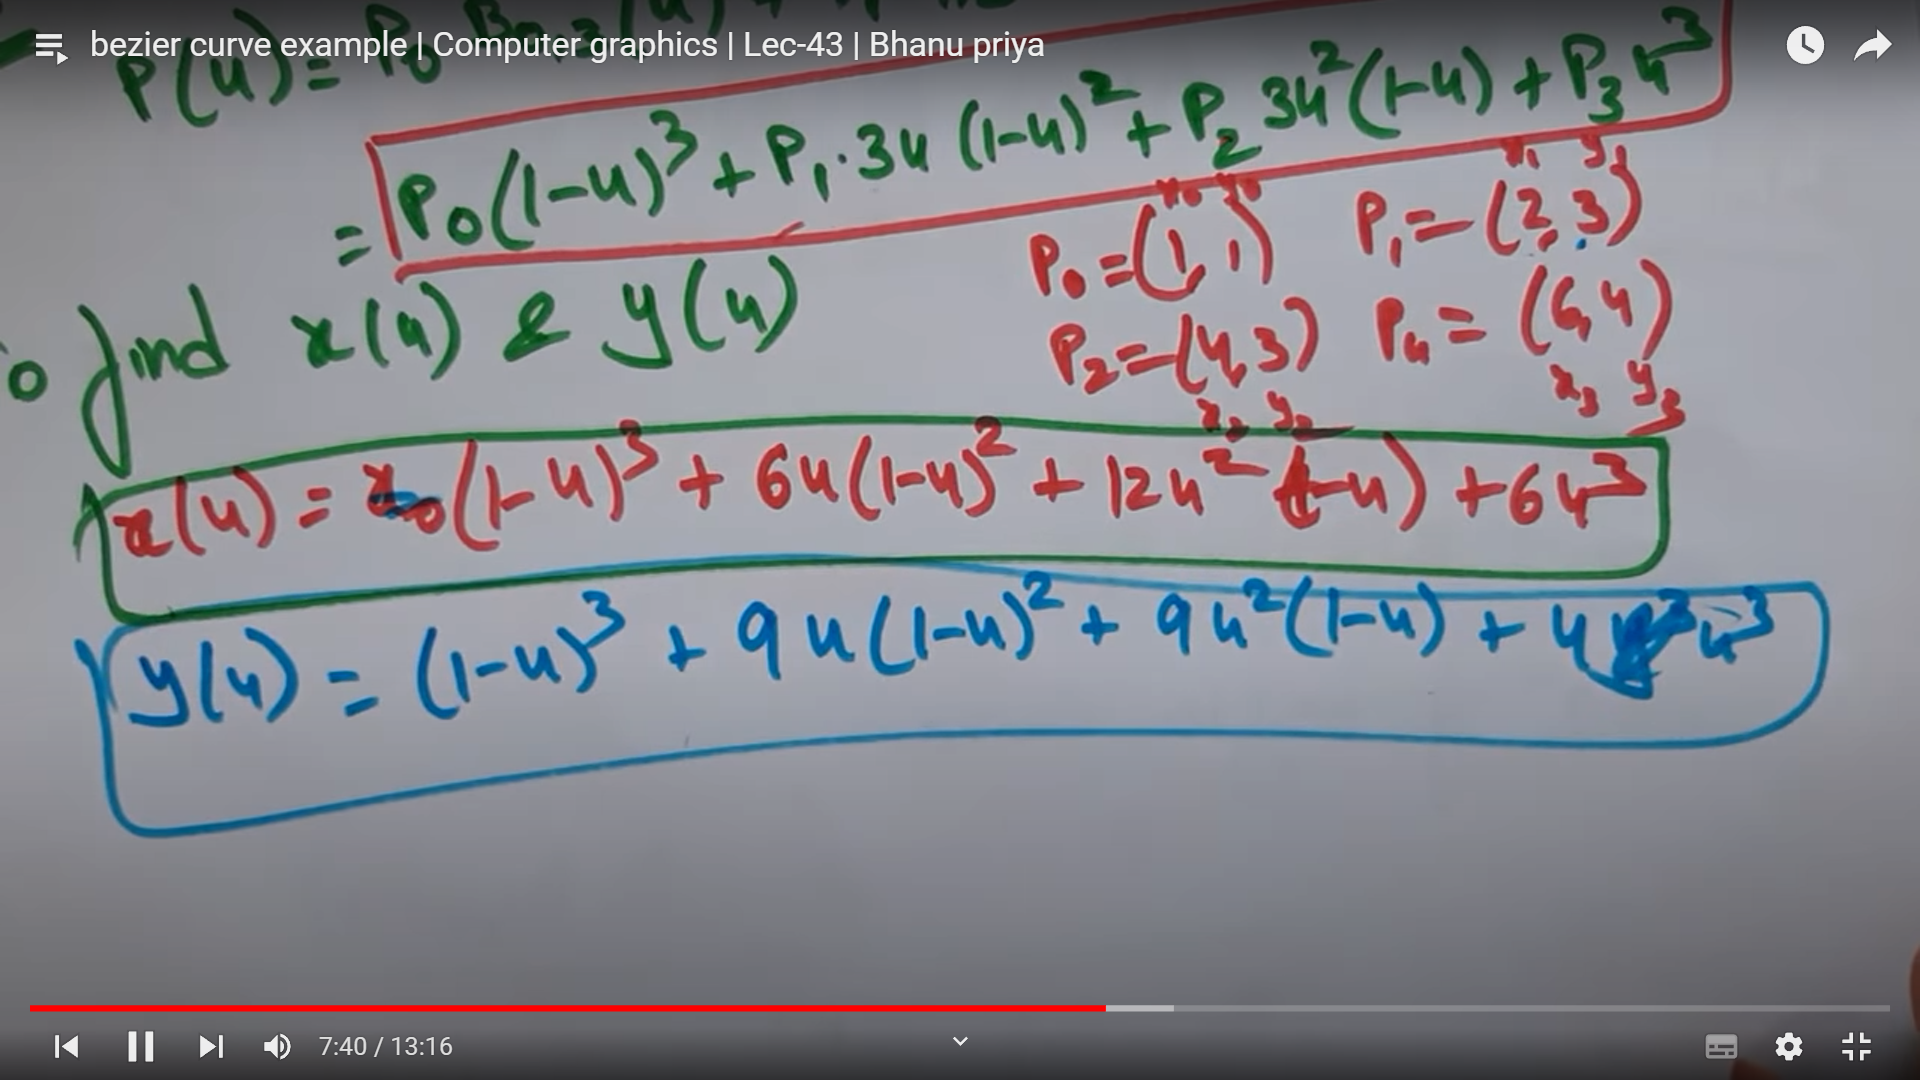 bezier curve example | Computer graphics | Lec-43 | Bhanu priya
P(u) = P0
= P0(1-u)^3 + P1.3u (1-u)^2 + P2 3u^2(1-u) + P3 u^3
x0 y0 x1 y1
P0 = (1, 1) P1 = (2, 3)
o find x(u) & y(u)
P2 = (4, 3) P4 = (6, 4)
x2 y2 x3 y3
x(u) = x0 (1-u)^3 + 6u(1-u)^2 + 12u^2 (1-u) + 6u^3
y(u) = (1-u)^3 + 9u(1-u)^2 + 9u^2(1-u) + 4 u^3
7:40 / 13:16